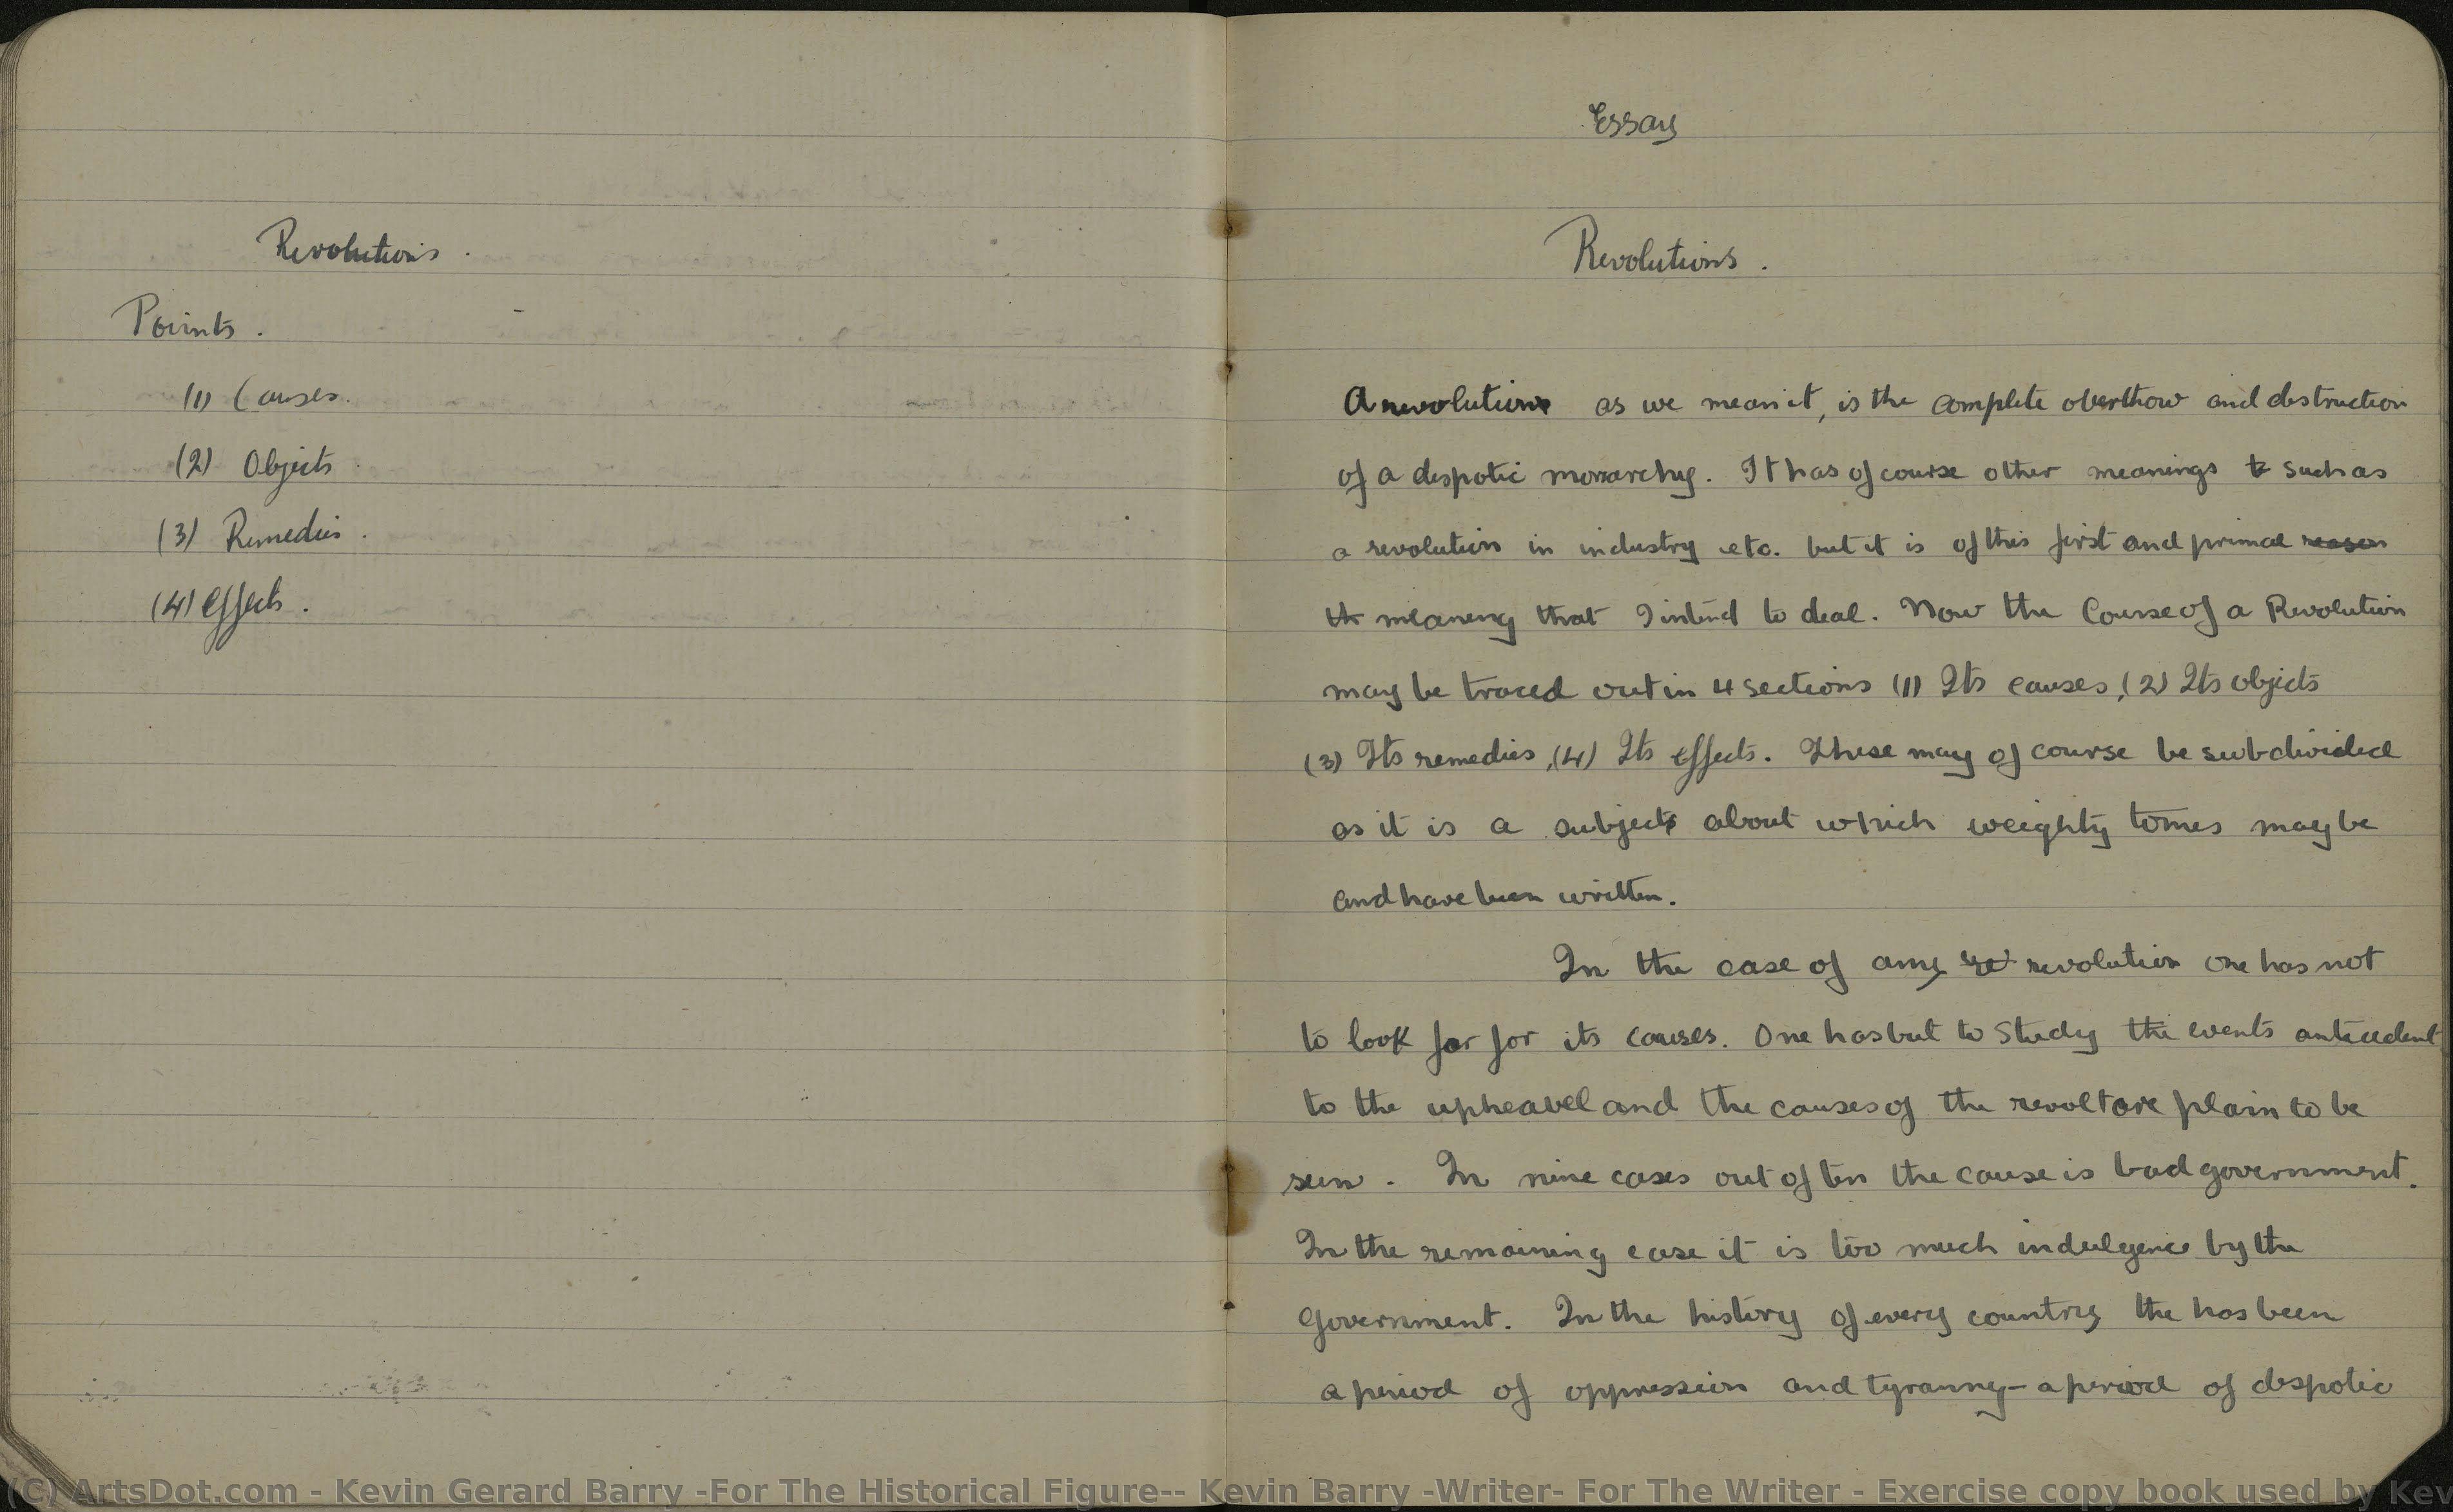 Revolutions.
Points.
(1) Causes.
(2) Objects.
(3) Remedies.
(4) Effects.
Essay
Revolutions.
A revolution as we mean it, is the complete overthow and destruction
of a despotic monarchy. It has of course other meanings to such as
a revolution in industry etc. but it is of this first and primal reason
th meaning that I intend to deal. Now the Course of a Revolution
may be traced out in 4 sections (1) Its causes, (2) Its objects
(3) Its remedies, (4) Its effects. These may of course be subdivided
as it is a subject about which weighty tomes may be
and have been written.
In the case of any re revolution one has not
to look far for its causes. One has but to study the events antecedent
to the upheavel and the causes of the revolt are plain to be
seen. In nine cases out of ten the cause is bad government.
In the remaining case it is too much indulgence by the
Government. In the history of every country the has been
a period of oppression and tyranny - a period of despotic
(C) ArtsDot.com - Kevin Gerard Barry -For The Historical Figure-- Kevin Barry -Writer- For The Writer - Exercise copy book used by Kev